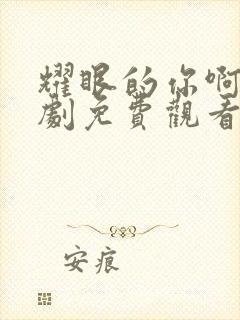 耀眼的你啊
劇免費觀看
安痕